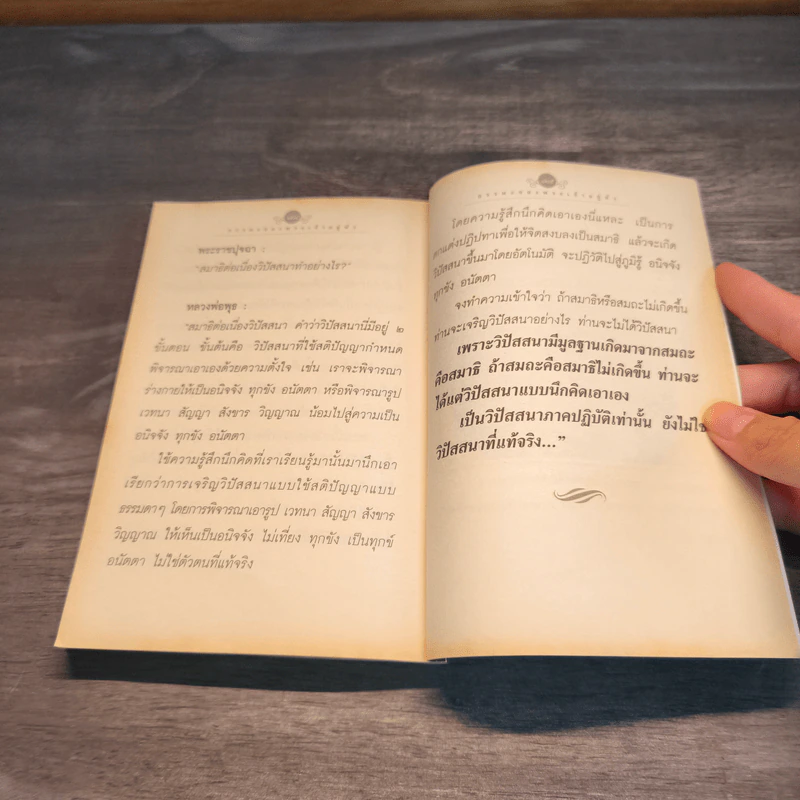 พระราชปุจฉา :
"สมาธิต่อเนื่องวิปัสสนาทำอย่างไร?"
หลวงพ่อพุธ :
"สมาธิต่อเนื่องวิปัสสนา คำว่าวิปัสสนานี่มีอยู่ ๒
ขั้นตอน ขั้นต้นคือ วิปัสสนาที่ใช้สติปัญญากำหนด
พิจารณาเอาเองด้วยความตั้งใจ เช่น เราจะพิจารณา
ร่างกายให้เป็นอนิจจัง ทุกขัง อนัตตา หรือพิจารณารูป
เวทนา สัญญา สังขาร วิญญาณ น้อมไปสู่ความเป็น
อนิจจัง ทุกขัง อนัตตา
ใช้ความรู้สึกนึกคิดที่เราเรียนรู้มานั้นมานึกเอา
เรียกว่าการเจริญวิปัสสนาแบบใช้สติปัญญาแบบ
ธรรมดาๆ โดยการพิจารณาเอารูป เวทนา สัญญา สังขาร
วิญญาณ ให้เห็นเป็นอนิจจัง ไม่เที่ยง ทุกขัง เป็นทุกข์
อนัตตา ไม่ใช่ตัวตนที่แท้จริง
โดยความรู้สึกนึกคิดเอาเองนี่แหละ เป็นการ
ตกแต่งปฏิปทาเพื่อให้จิตสงบลงเป็นสมาธิ แล้วจะเกิด
วิปัสสนาขึ้นมาโดยอัตโนมัติ จะปฏิวัติไปสู่ภูมิรู้ อนิจจัง
ทุกขัง อนัตตา
จงทำความเข้าใจว่า ถ้าสมาธิหรือสมถะไม่เกิดขึ้น
ท่านจะเจริญวิปัสสนาอย่างไร ท่านจะไม่ได้วิปัสสนา
เพราะวิปัสสนามีมูลฐานเกิดมาจากสมถะ
คือสมาธิ ถ้าสมถะคือสมาธิไม่เกิดขึ้น ท่านจะ
ได้แต่วิปัสสนาแบบนึกคิดเอาเอง
เป็นวิปัสสนาภาคปฏิบัติเท่านั้น ยังไม่ใช่
วิปัสสนาที่แท้จริง..."